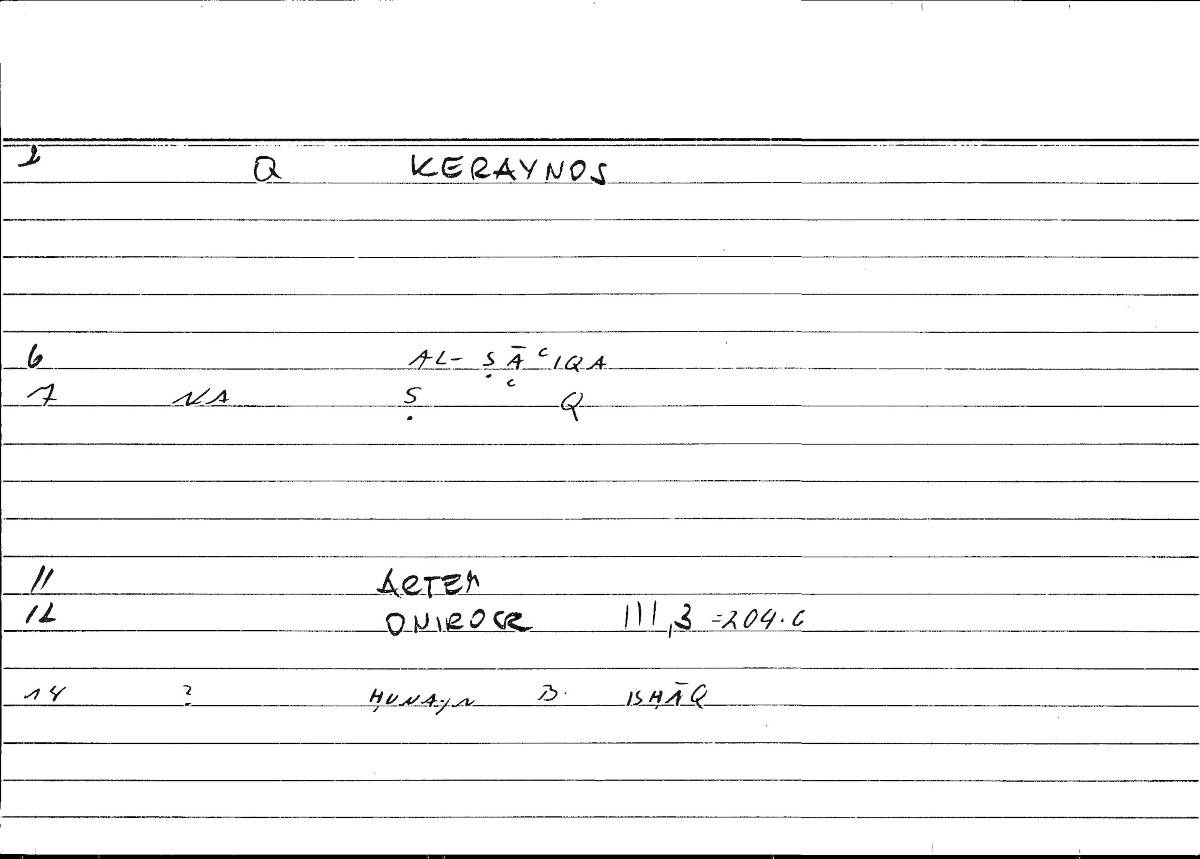 2 Q KERAYNOS
6 AL-ṢĀʿIQA
7 NA Ṣ ʿ Q
11 ARTEM
12 ONIROCR III,3 =204.6
14 ? ḤUNAYN B. ISḤĀQ